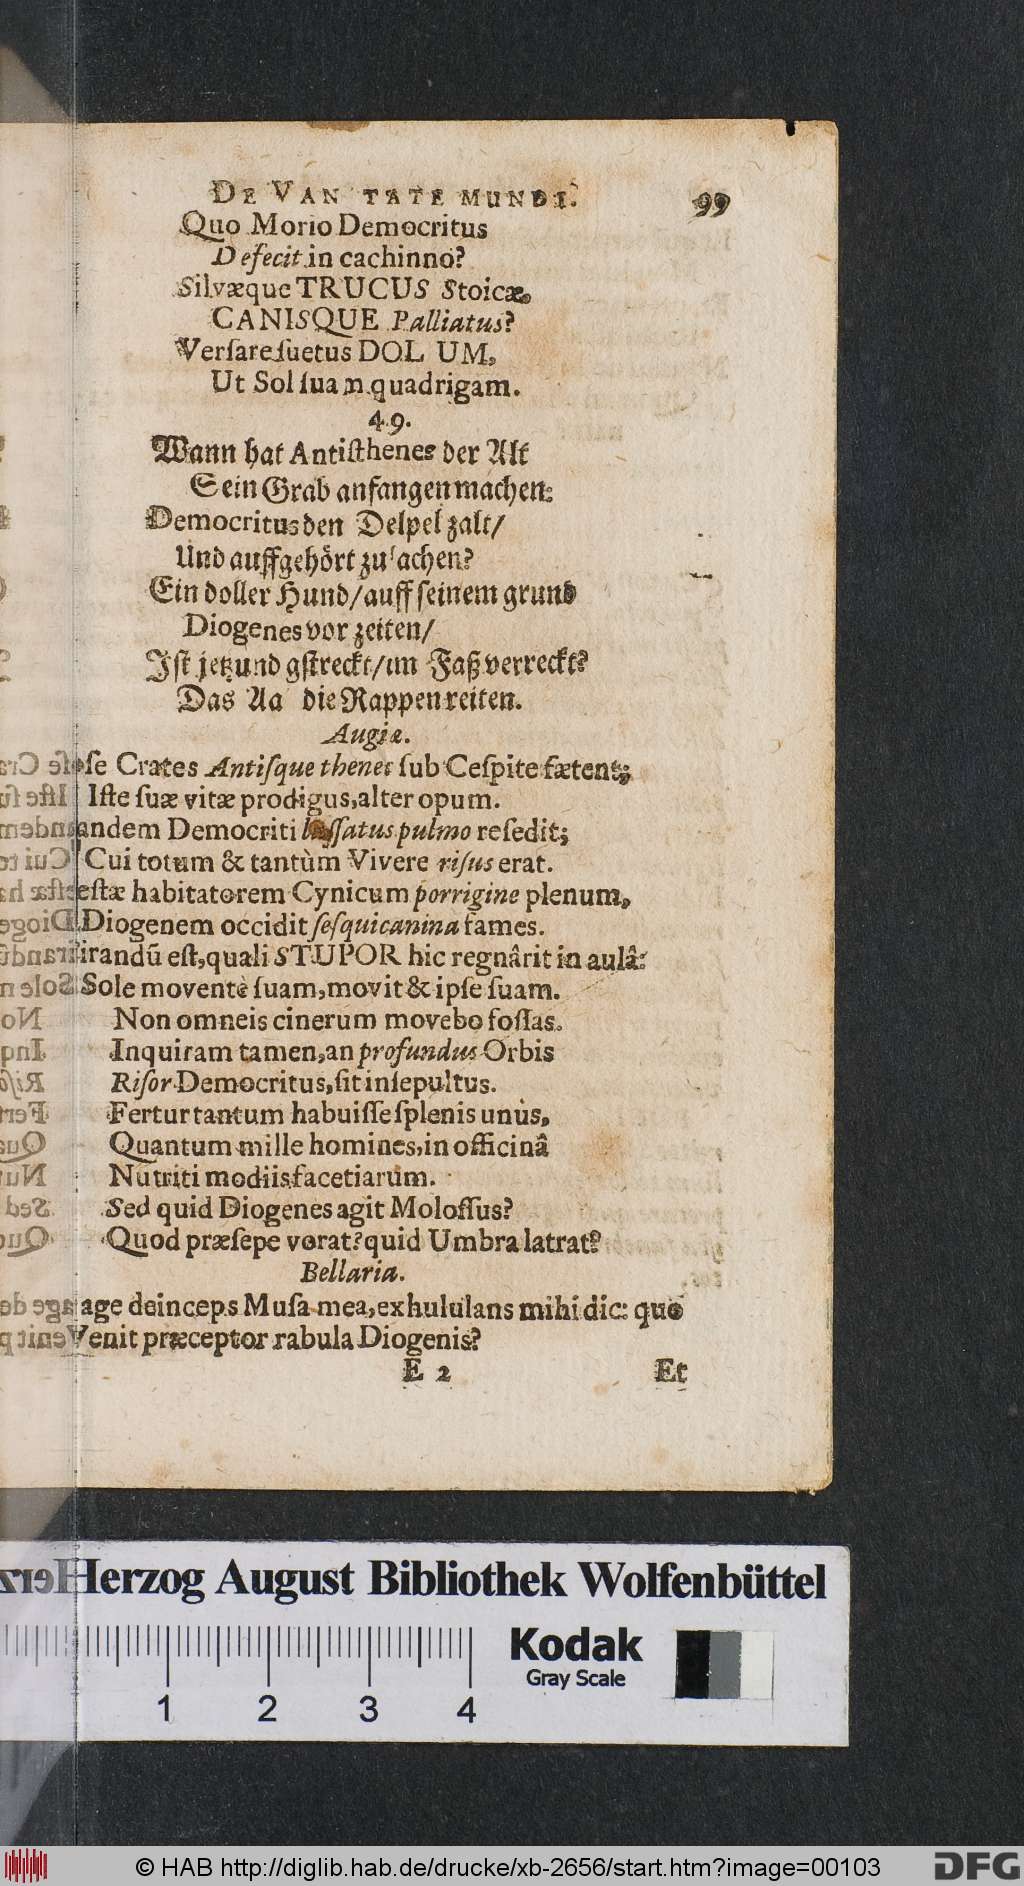 DE VAN TATE MUNDI. 99
Quo Morio Democritus
Defecit in cachinno?
Silvæque TRUCUS Stoicæ,
CANISQUE Palliatus?
Verſare ſuetus DOL UM,
Ut Sol ſuam quadrigam.
49.
Wann hat Antiſthenes der Alt
Sein Grab anfangen machen:
Democritus den Delpel zalt/
Und auffgehört zu achen?
Ein doller Hund/auff ſeinem grund
Diogenes vor zeiten/
Iſt jetzund gſtreckt/im Faß verreckt?
Das Aa die Rappen reiten.
Augiæ.
ſe Crates Antiſque thenes ſub Ceſpite fætent;
Iſte ſuæ vitæ prodigus, alter opum.
andem Democriti laſſatus pulmo reſedit;
Cui totum & tantùm Vivere riſus erat.
eſtæ habitatorem Cynicum porrigine plenum,
Diogenem occidit ſeſquicanina fames.
irandū eſt, quali STUPOR hic regnârit in aulâ:
Sole moventè ſuam, movit & ipſe ſuam.
Non omneis cinerum movebo foſſas.
Inquiram tamen, an profundus Orbis
Riſor Democritus, ſit inſepultus.
Fertur tantum habuiſſe ſplenis unùs,
Quantum mille homines, in officinâ
Nutriti modiis facetiarum.
Sed quid Diogenes agit Moloſſus?
Quod præſepe vorat? quid Umbra latrat?
Bellaria.
age deinceps Muſa mea, exhululans mihi dic: quo
Venit præceptor rabula Diogenis?
E 2 Et
Herzog August Bibliothek Wolfenbüttel
Kodak
Gray Scale
1 2 3 4
© HAB http://diglib.hab.de/drucke/xb-2656/start.htm?image=00103
DFG